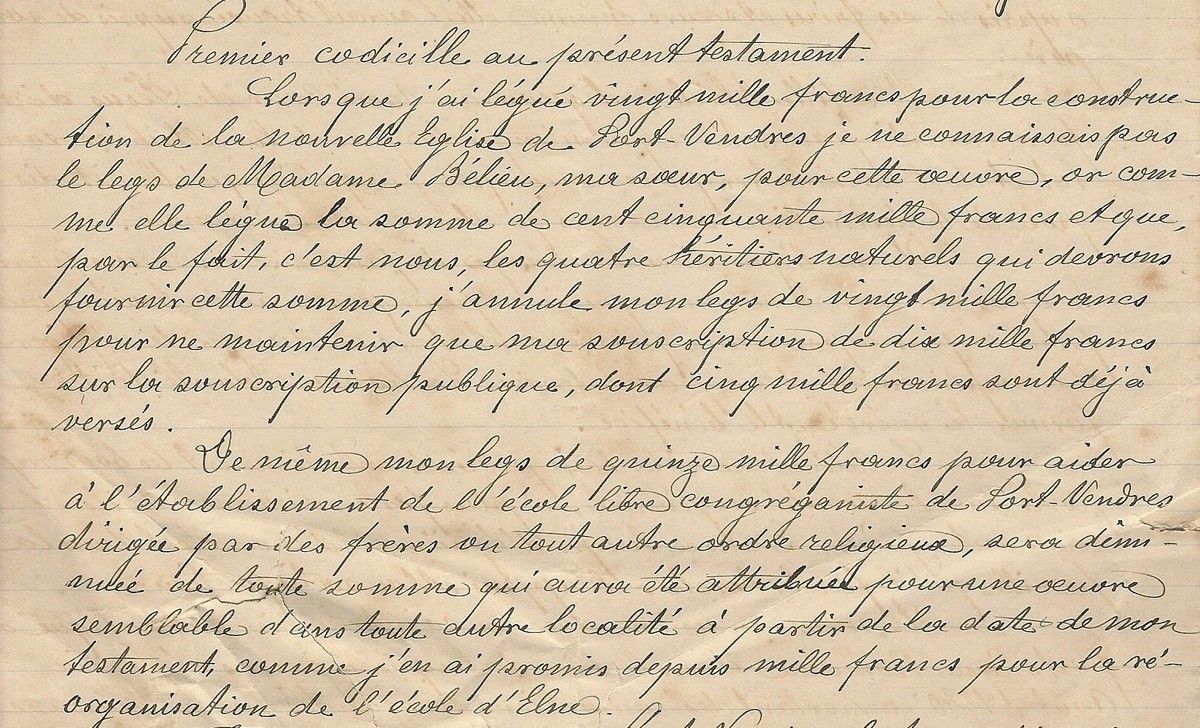 Premier codicille au présent testament.
Lorsque j'ai légué vingt mille francs pour la construc-
tion de la nouvelle Eglise de Port-Vendres je ne connaissais pas
le legs de Madame Bélieu, ma sœur, pour cette œuvre, or com-
me elle légue la somme de cent cinquante mille francs et que,
par le fait, c'est nous, les quatre héritiers naturels qui devrons
fournir cette somme, j'annule mon legs de vingt mille francs
pour ne maintenir que ma souscription de dix mille francs
sur la souscription publique, dont cinq mille francs sont déjà
versés.
De même mon legs de quinze mille francs pour aider
à l'établissement de l'école libre congréganiste de Port-Vendres
dirigée par des frères ou tout autre ordre religieux, sera dimi-
nuée de toute somme qui aura été attribuée pour une œuvre
semblable dans toute autre localité à partir de la date de mon
testament, comme j'en ai promis depuis mille francs pour la ré-
organisation de l'école d'Elne.